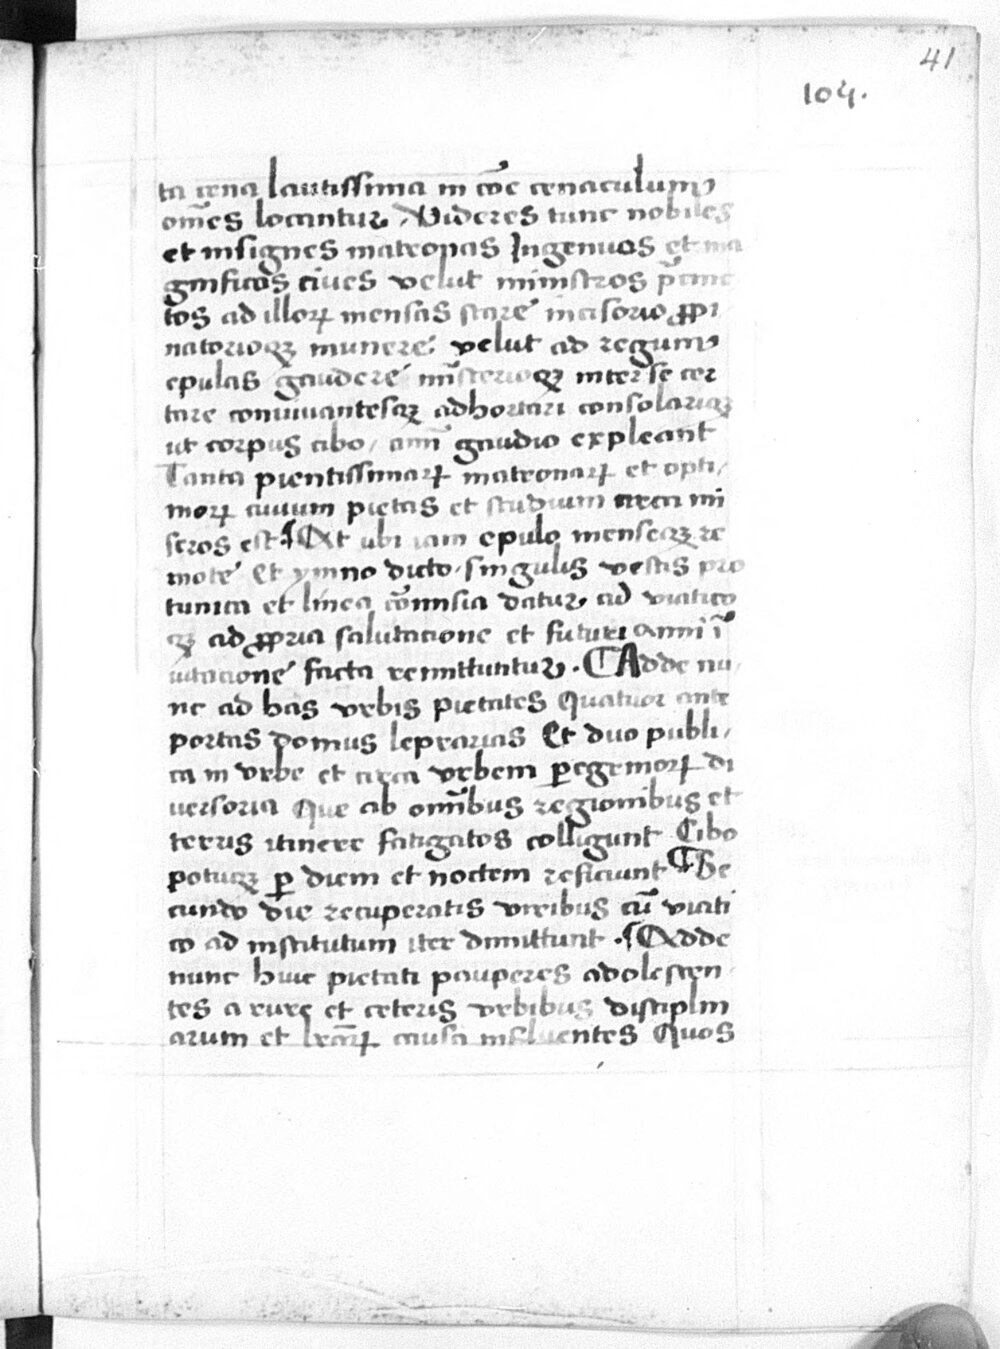 41
104.
ta cena lautissima in cōe cenaculum
om̄es locantur, Videres tunc nobiles
et insignes matronas Ingenuos et ma
gnificos ciues velut ministros p̄cinc
tos ad illoꝝ mensas stare incisorio ꝓpi
natorioqꝫ munere: velut ad regum
epulas gaudere mīsterioqꝫ inter se cer
tare conuiuantesqꝫ adhortari consolariqꝫ
ut corpus cibo / anīm gaudio expleant
Tanta pientissimaꝝ matronaꝝ et opti/
moꝝ ciuium pietas et studium circa mi
seros est ¶ At ubi iam epulo menseqꝫ re
mote Et ymno dicto. singulis vestis pro
tunica et linea cōmisia datur, ad viatico
qꝫ ad ꝓpria salutacione et futuri anni ī
uitacione facta remittuntur. ¶ Adde nu/
nc ad has vrbis pietates Quatuor ante
portas domus leprarias Et duo publi/
ca in vrbe et circa vrbem ꝑegrinoꝝ di
uersoria Que ab om̄ibus regionibus et
terris itinere fatigatos colligunt Cibo
potuqꝫ ꝑ diem et noctem reficiunt ¶ Se
cundo die recuperatis viribus cū viati
co ad institutum iter dimittunt. ¶ Adde
nunc huic pietati pauperes adolescen
tes a rure et ceteris vrbibus disciplin
arum et lr̄aꝝ causa influentes Quos